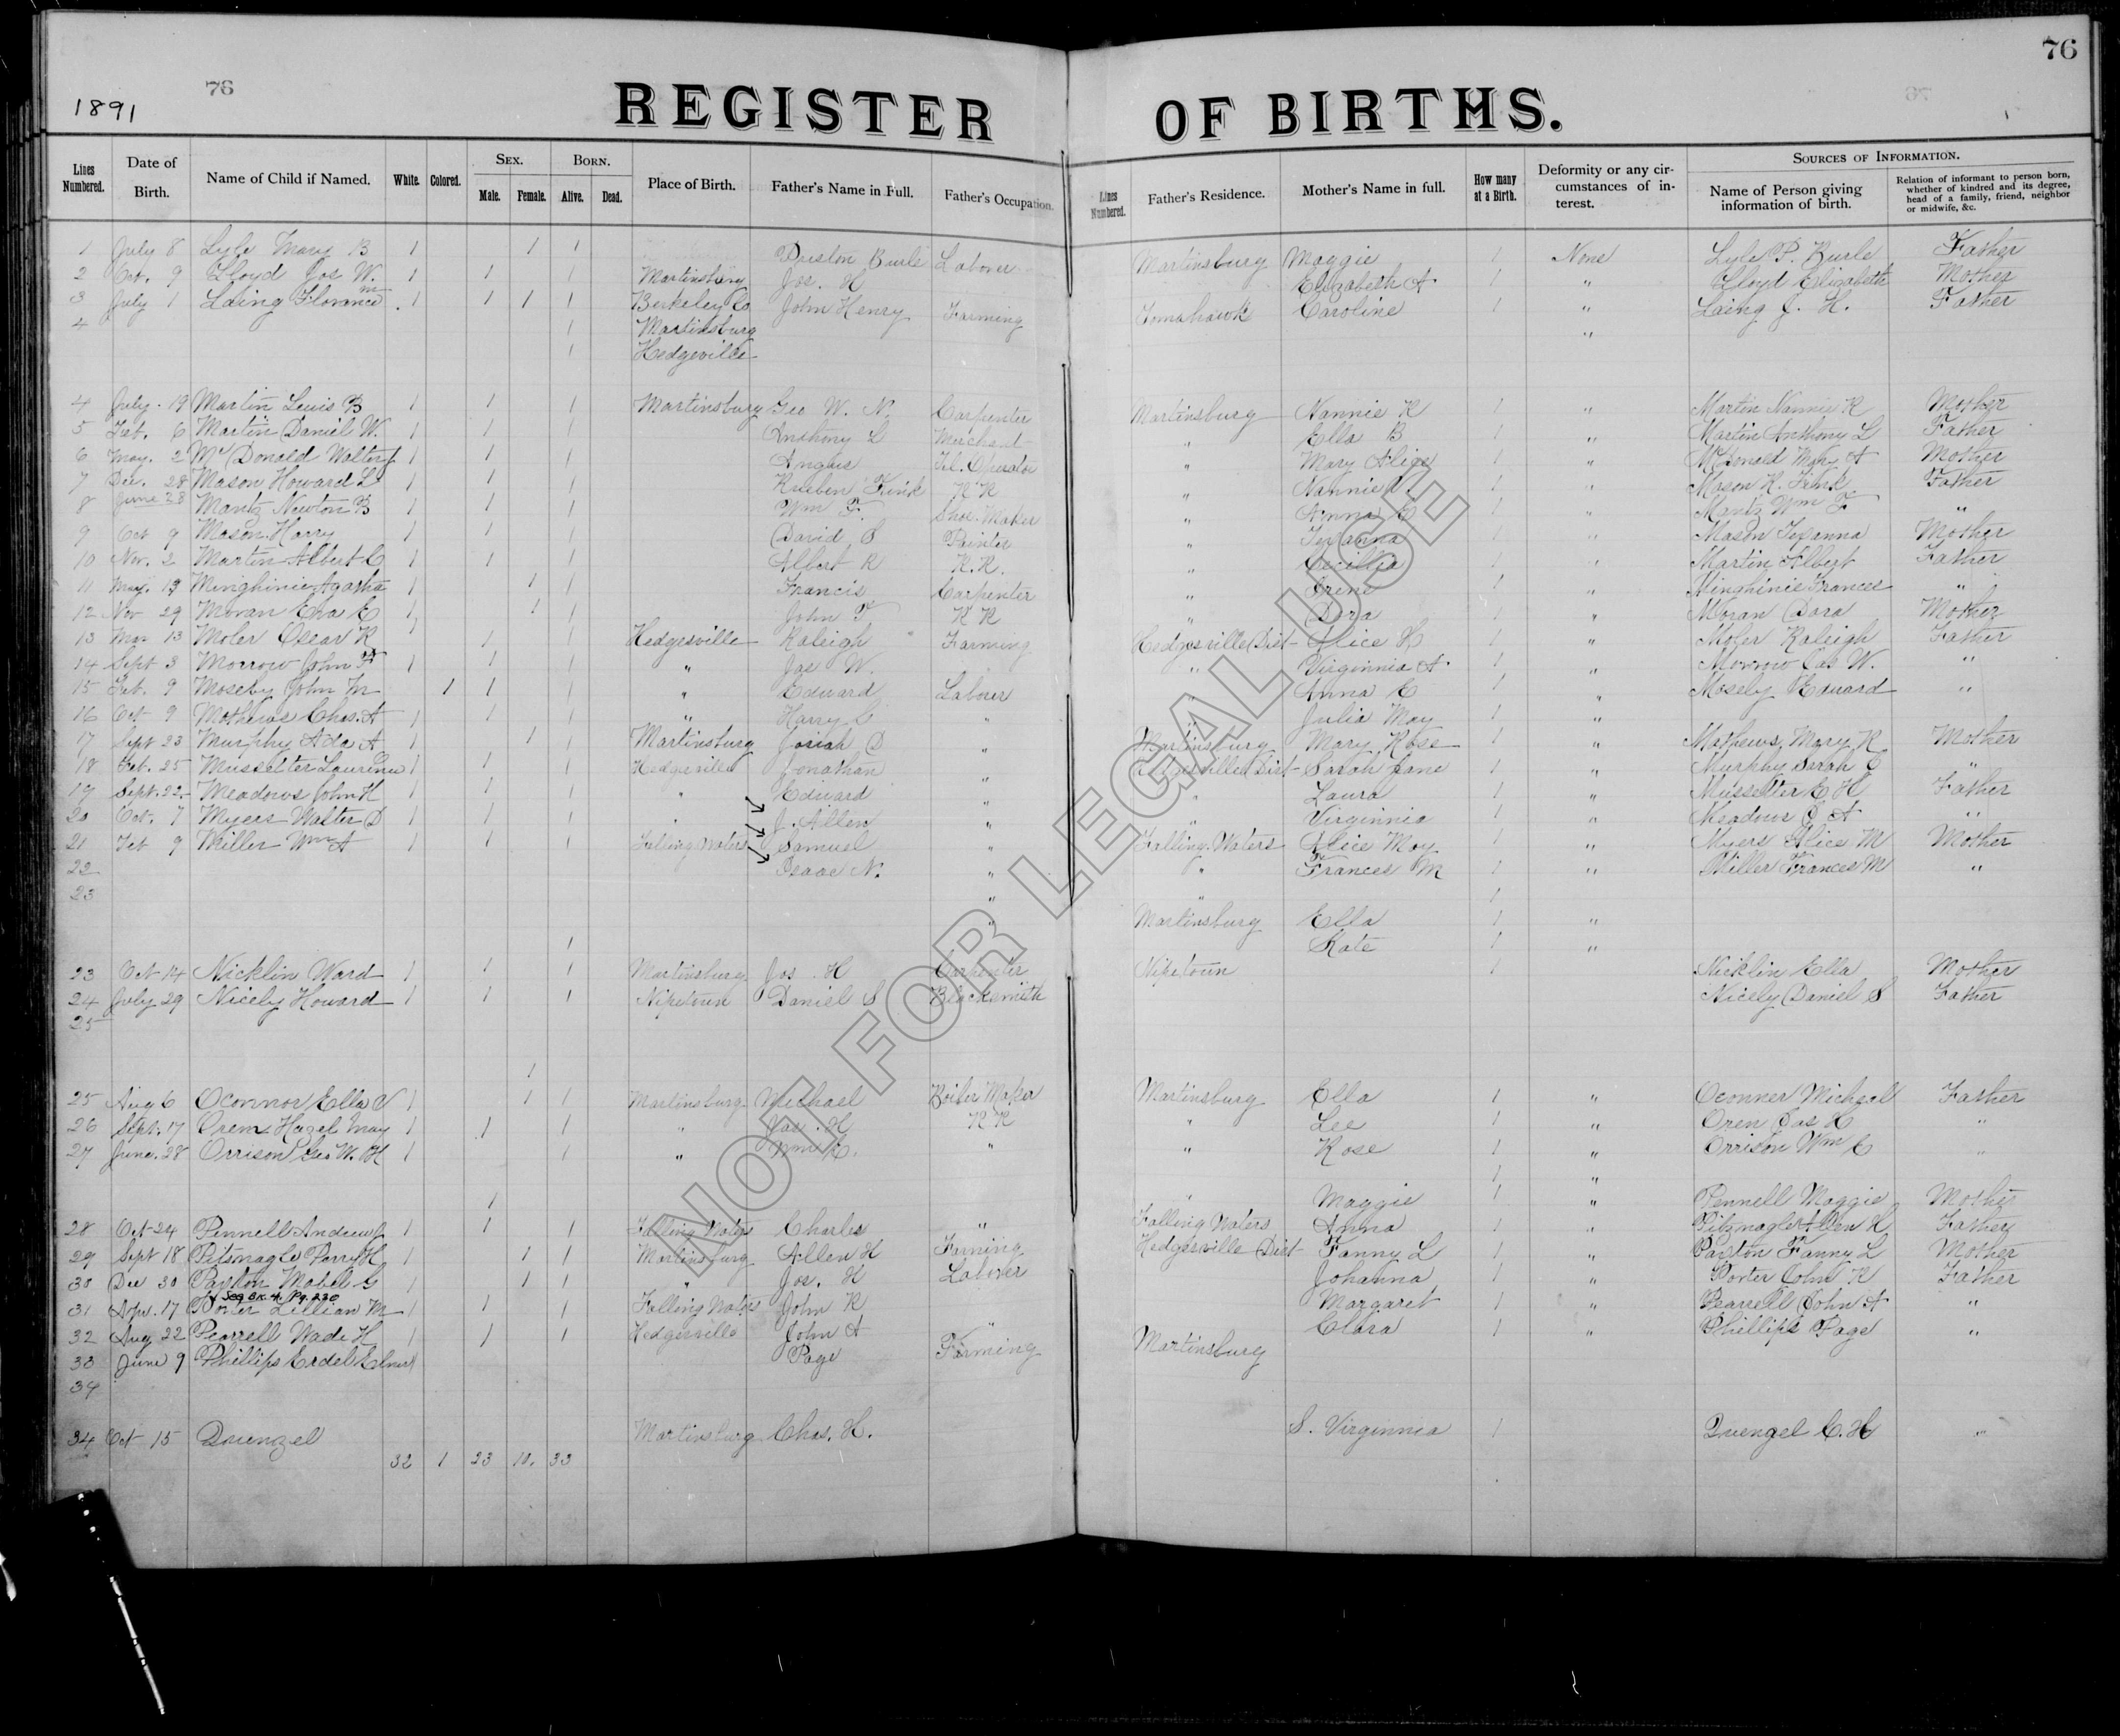 76
76
1891
REGISTER OF BIRTHS.
Lines Numbered. Date of Birth. Name of Child if Named. White. Colored. Sex. Male. Female. Born. Alive. Dead. Place of Birth. Father's Name in Full. Father's Occupation. Lines Numbered. Father's Residence. Mother's Name in full. How many at a Birth. Deformity or any circumstances of interest. Sources of Information. Name of Person giving information of birth. Relation of informant to person born, whether of kindred and its degree, head of a family, friend, neighbor or midwife, &c.
1 July 8 Lyle Mary B 1 1 1 Preston Burle Laborer Martinsburg Maggie 1 None Lyle P. Burle Father
2 Oct. 9 Lloyd Jos W. 1 1 1 Martinsburg Jos. H Elizabeth A. 1 " Lloyd Elizabeth Mother
3 July 1 Laing Florance 1 1 1 1 Berkeley Co John Henry Farming Tomahawk Caroline 1 " Laing J. H. Father
4 1 Martinsburg "
1 Hedgeville
4 July 19 Martin Lewis B 1 1 1 Martinsburg Geo W. N. Carpenter Martinsburg Nannie K 1 " Martin Nannie K Mother
5 Feb. 6 Martin Daniel W. 1 1 1 Anthony L Merchant " Ella B 1 " Martin Anthony L Father
6 May. 2 McDonald Walter 1 1 1 Angus Tel. Operator " Mary Alice 1 " McDonald Mary A Mother
7 Dec. 28 Mason Howard L 1 1 1 Rueben Fink R R " Nannie 1 " Mason R. Fink Father
8 June 28 Mantz Newton B 1 1 1 Wm F. Shoe Maker " Anna C 1 " Mantz Wm F "
9 Oct 9 Mason Harry 1 1 1 David S Painter " Texanna 1 " Mason Texanna Mother
10 Nov. 2 Martin Albert C 1 1 1 Albert R R.R. " Cecillia 1 " Martin Albert Father
11 May. 13 Minghinie Agatha 1 1 1 Francis Carpenter " Irene 1 " Minghinie Frances "
12 Nov 29 Moran Eva E 1 1 1 John F R R " Dora 1 " Moran Dora Mother
13 Mar 13 Moler Oscar R 1 1 1 Hedgesville Raleigh Farming Hedgesville Dist Alice H 1 " Moler Raleigh Father
14 Sept 3 Morrow John H 1 1 1 " Jas W. " Virginnia A. 1 " Morrow Jas W. "
15 Feb. 9 Moseby John M 1 1 1 " Edward Laborer " Anna E 1 " Mosely Edward "
16 Oct 9 Mathews Chas. A 1 1 1 " Harry C " " Julia May 1 "
17 Sept 23 Murphy Ada A 1 1 1 Martinsburg Josiah D " Martinsburg Mary Rose 1 " Mathews Mary R Mother
18 Feb. 25 Musselter Laurence 1 1 1 Hedgesville Jonathan " Hedgesville Dist Sarah Jane 1 " Murphy Sarah C "
19 Sept. 22 Meadows John H 1 1 1 " Edward " " Laura 1 " Musselter E H Father
20 Oct. 7 Myers Walter D 1 1 1 " J. Allen " " Virginnia 1 " Meadows J A "
21 Feb 9 Miller Wm A 1 1 1 Falling Waters Samuel " Falling Waters Alice May 1 " Myers Alice M Mother
22 Isaac N. " " Frances M 1 " Miller Frances M "
23 " " 1
" Martinsburg Ella 1 "
1 Kate 1 "
23 Oct 14 Nicklin Ward 1 1 1 Martinsburg Jos. H Carpenter Nipetown 1 Nicklin Ella Mother
24 July 29 Nicely Howard 1 1 1 Nipetown Daniel S Blacksmith Nicely Daniel S Father
25
1
25 Aug 6 Oconnor Ella 1 1 1 Martinsburg Michael Boiler Maker Martinsburg Ella 1 " Oconner Micheal Father
26 Sept. 17 Orem Hazel May 1 1 1 " Jas. H R R " Lee 1 " Oren Jas H "
27 June. 28 Orrison Geo W. H 1 1 " Wm C. " " Rose 1 " Orrison Wm C "
1 " Maggie 1 " Pennell Maggie Mother
28 Oct 24 Pennell Andrew 1 1 1 Falling Waters Charles " Falling Waters Anna 1 " Pitznagle Allen H Father
29 Sept 18 Pitsnagle Perry H 1 1 1 Martinsburg Allen H Farming Hedgesville Dist Fanny L 1 " Paxton Fanny L Mother
30 Dec 30 Paxton Mabel G 1 1 1 " Jos. H Laborer Johanna 1 " Porter John R Father
See Bk 4. Pg. 230
31 Apr. 17 Porter Lillian M 1 1 1 Falling Waters John R Margaret 1 " Pearrell John A "
32 Aug 22 Pearrell Wade H 1 1 1 Hedgesville John A " Clara 1 " Phillips Page "
33 June 9 Phillips Erdel Elmer 1 Page Farming Martinsburg
34
34 Oct 15 Quenzel Martinsburg Chas. H. S. Virginnia 1 Quenzel C. H "
32 1 23 10. 33
NOT FOR LEGAL USE